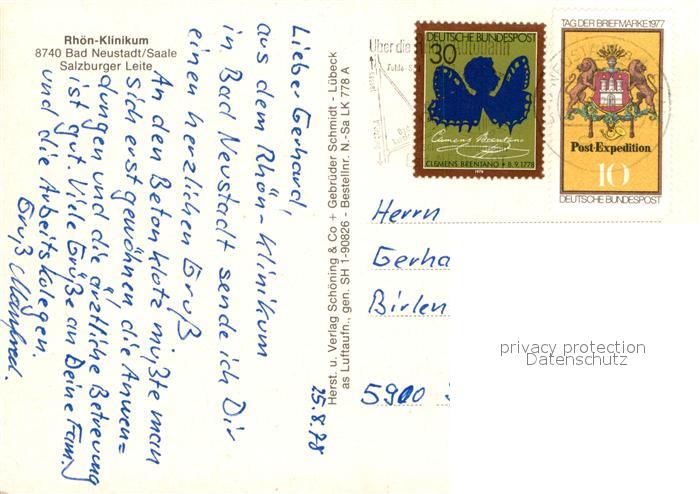 Rhön-Klinikum
8740 Bad Neustadt/Saale
Salzburger Leite
Lieber Gerhard,
aus dem Rhön-Klinikum
in Bad Neustadt sende ich Dir
einen herzlichen Gruß
An den Betonklotz müßte man
sich erst gewöhnen die Anwen=
dungen und die ärztliche Betreuung
ist gut. Viele Grüße an Deine Fam.
und die Arbeitskolegen.
Gruß Manfred.
25.8.78
Herst. u. Verlag Schöning & Co + Gebrüder Schmidt - Lübeck
as Luftaufn., gen. SH 1-90826 - Bestellnr. N.-Sa LK 778 A
Über die
Autobahn
DEUTSCHE BUNDESPOST
30
Clemens Brentano
CLEMENS BRENTANO * 8.9.1778
1978
TAG DER BRIEFMARKE 1977
Post-Expedition
10
DEUTSCHE BUNDESPOST
Herrn
Gerha
Birlen
5900
privacy protection
Datenschutz